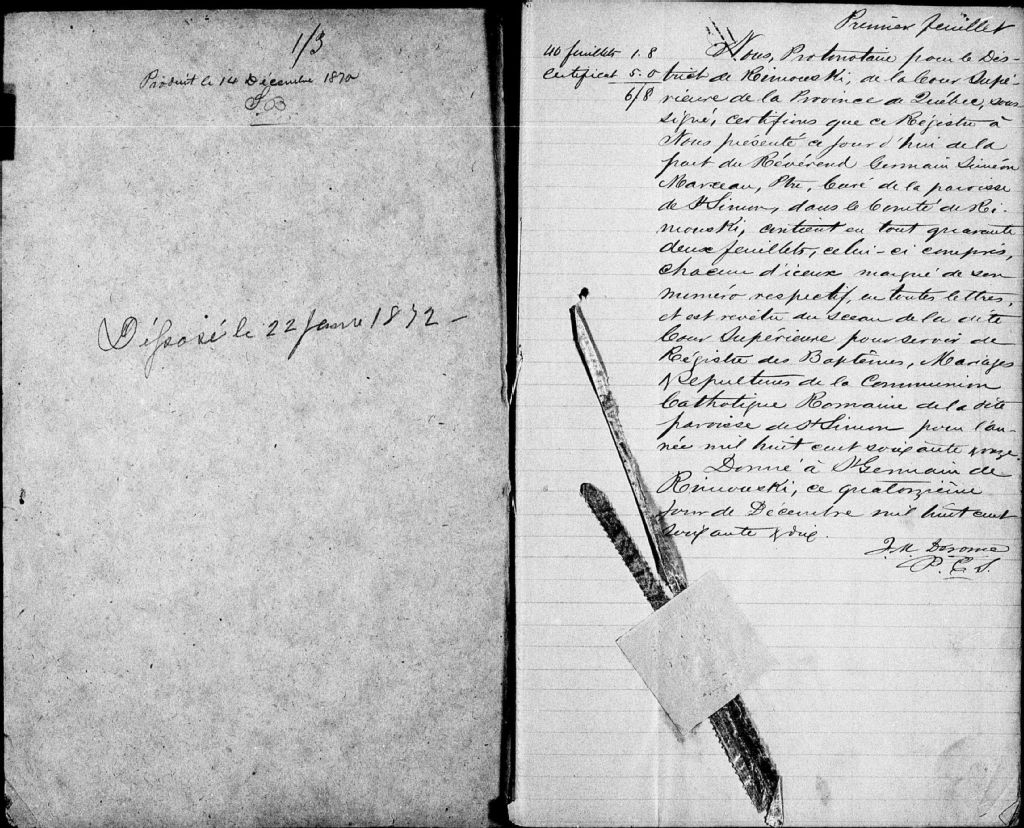 1/3
Produit le 14 Décembre 1870
Déposé le 22 Janv 1872 -
Premier feuillet
40 feuillets 1.8
Certificat 5.0
6/8
Nous, Protonotaire pour le Dis-
trict de Rimouski, de la Cour Supé-
rieure de la Province de Québec, sous-
signé, certifions que ce Régistre à
Nous présenté ce jour d'hui de la
part du Révérend Germain Siméon
Marceau, Ptre, Curé de la paroisse
de St Simon, dans le Comté de Ri-
mouski, contient en tout quarante
deux feuillets, celui-ci compris,
chacun d'iceux marqué de son
numéro respectif, en toutes lettres,
et est revêtu du sceau de la dite
Cour Supérieure pour servir de
Régistre des Baptêmes, Mariages
& Sépultures de la Communion
Catholique Romaine de la dite
paroisse de St Simon pour l'an-
née mil huit cent soixante & onze.
Donné à St Germain de
Rimouski, ce quatorzième
jour de Décembre mil huit cent
soixante & dix.
P. C. S.